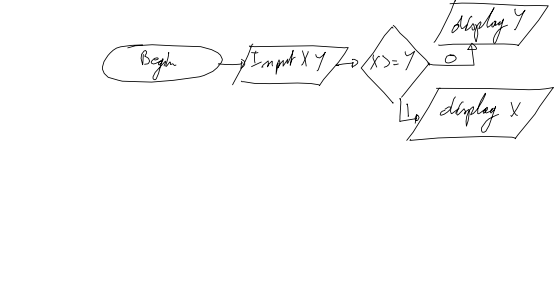 Begin
Input X Y
X >= Y
0
display Y
1
display X